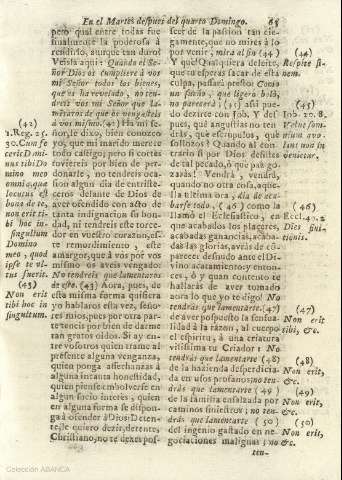 En el Martes despues del quarto Domingo. 65
pero qual entre todas fue
finalmente la poderosa á
rendirlo, aunque tan duro?
Veisla aqui: Quando el Se-
ñor Dios os cumpliere à vos
mi Señor todos los bienes,
que os ha revelado, no ten-
dreis vos mi Señor que la-
mentaros de que os vengasteis
à vos mismo. (42) Ha mi Se-
ñor, le dixo, bien conozco
yo, que mi marido merece
todo castigo; mas si cortes
tuviereis por bien de per-
donarle, no tendreis oca-
sion alguna dia de entriste-
ceros delante de Dios de
aver ofendido con acto de
tanta indignacion su bon-
dad, ni tendreis este torce-
dor en vuestro corazon, es-
te remordimiento, este
amargor, que à vos por vos
mismo os aveis vengado:
No tendreis que lamentaros
de esso. (43) Aora, pues, de
esta misma forma quisiera
yo hablaros esta vez, seño-
res mios, pues por otra par-
te teneis por bien de darme
tan gratos oidos. Si ay en-
tre vosotros quien trame al
presente alguna venganza,
quien ponga assechanzas à
alguna intacta honestidad,
quien piense embolverse en
algun sucio interès, quien
en alguna forma se dispon-
ga à ofender à Dios: Deten-
te, le quiero dezir, detente,
Christiano, no te dexes pos-
(42)
1. Reg. 25.
30. Cum fe-
cerit Domi-
nus tibi Do-
mino meo
omnia, quæ
locutus est
bona de te,
non erit ti-
bi hoc in
singultum
Domino
meo, quod
ipse te vl-
tus fueris.
(43)
Non erit
tibi hoc in
singultum.
seer de la passion tan cie-
gamente, que no mires à lo
por venir, mira al fin (44)
Y què? Qualquiera deleite,
que tu esperas sacar de esta
culpa, passará presto: Como
un sueño, que ligero bolò,
no parecerà; (45) assi pue-
do dezirte con Job. Y des-
pues, què angustias no ten-
dràs, què escrupulos, què
sollozos? Quando al con-
trario si por Dios desistes
de tal pecado, ò què pàz go-
zaràs! Vendrà, vendrá,
quando no otra cosa, aque-
lla ultima ora, dia de aca-
barse todo, (46) como la
llamò el Eclesiastico, en
que acabados los placeres,
acabadas ganancias, acaba-
das las glorias, avràs de cõ-
parecer desnudo ante el Di-
vino acatamiento; y enton-
ces, ò y quan contento te
hallaràs de aver tomado
aora lo que yo te digo! No
tendràs que lamentarte. (47)
de aver pospuesto la sensua-
lidad à la razon, al cuerpo
el espiritu, à una criatura
vilissima tu Criador: No
tendràs que lamentarte (48)
de la hazienda desperdicia-
da en usos profanos: no ten-
dràs que lamentarte (49)
de la familia ensalzada por
caminos siniestros; no ten-
dràs que lamentarte (50)
del ingenio gastado en ne-
gociaciones malignas; no
ten-
(44)
Respice fi-
nem.
(45)
Job. 20. 8.
Velut som-
nium avo-
lans non in-
venietur.
Eccl. 40. 2
Dies fini-
tionis.
(47)
Non erit
tibi, &c.
(48)
Non erit,
&c.
(49)
Non erit,
&c.
(50)
Non erit,
&c.
Colección ABANCA